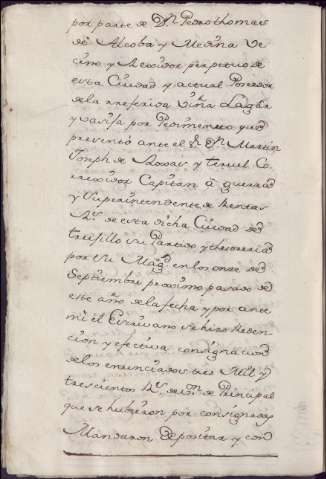 por parte de Dn. Pedro thomas
de Alcoba y Medina Ve
cino y Rexidor perpetuo de
esta Ciudad y actual Posedor
de la rreferida Viña Lagar
y vasija por Pedimento que
presentó ante el Sr. Dn. Martin
Joseph de Roxas y teruel Co
rrexidor Capitan á guerra
y Superintendente de Rentas
Rs. de esta dicha Ciudad de
truxillo su Partido y thesoreria
por su Magd. en los onze de
Septiembre proximo pasado de
este año de la fecha y por ante
mi el Escrivano se hizo Reden
cion y efectiva consignacion
de los enunciados tres Mill y
trescientos Rs. de vn. de Principal
que se hubieron por consignados
Mandaron Depositar y con